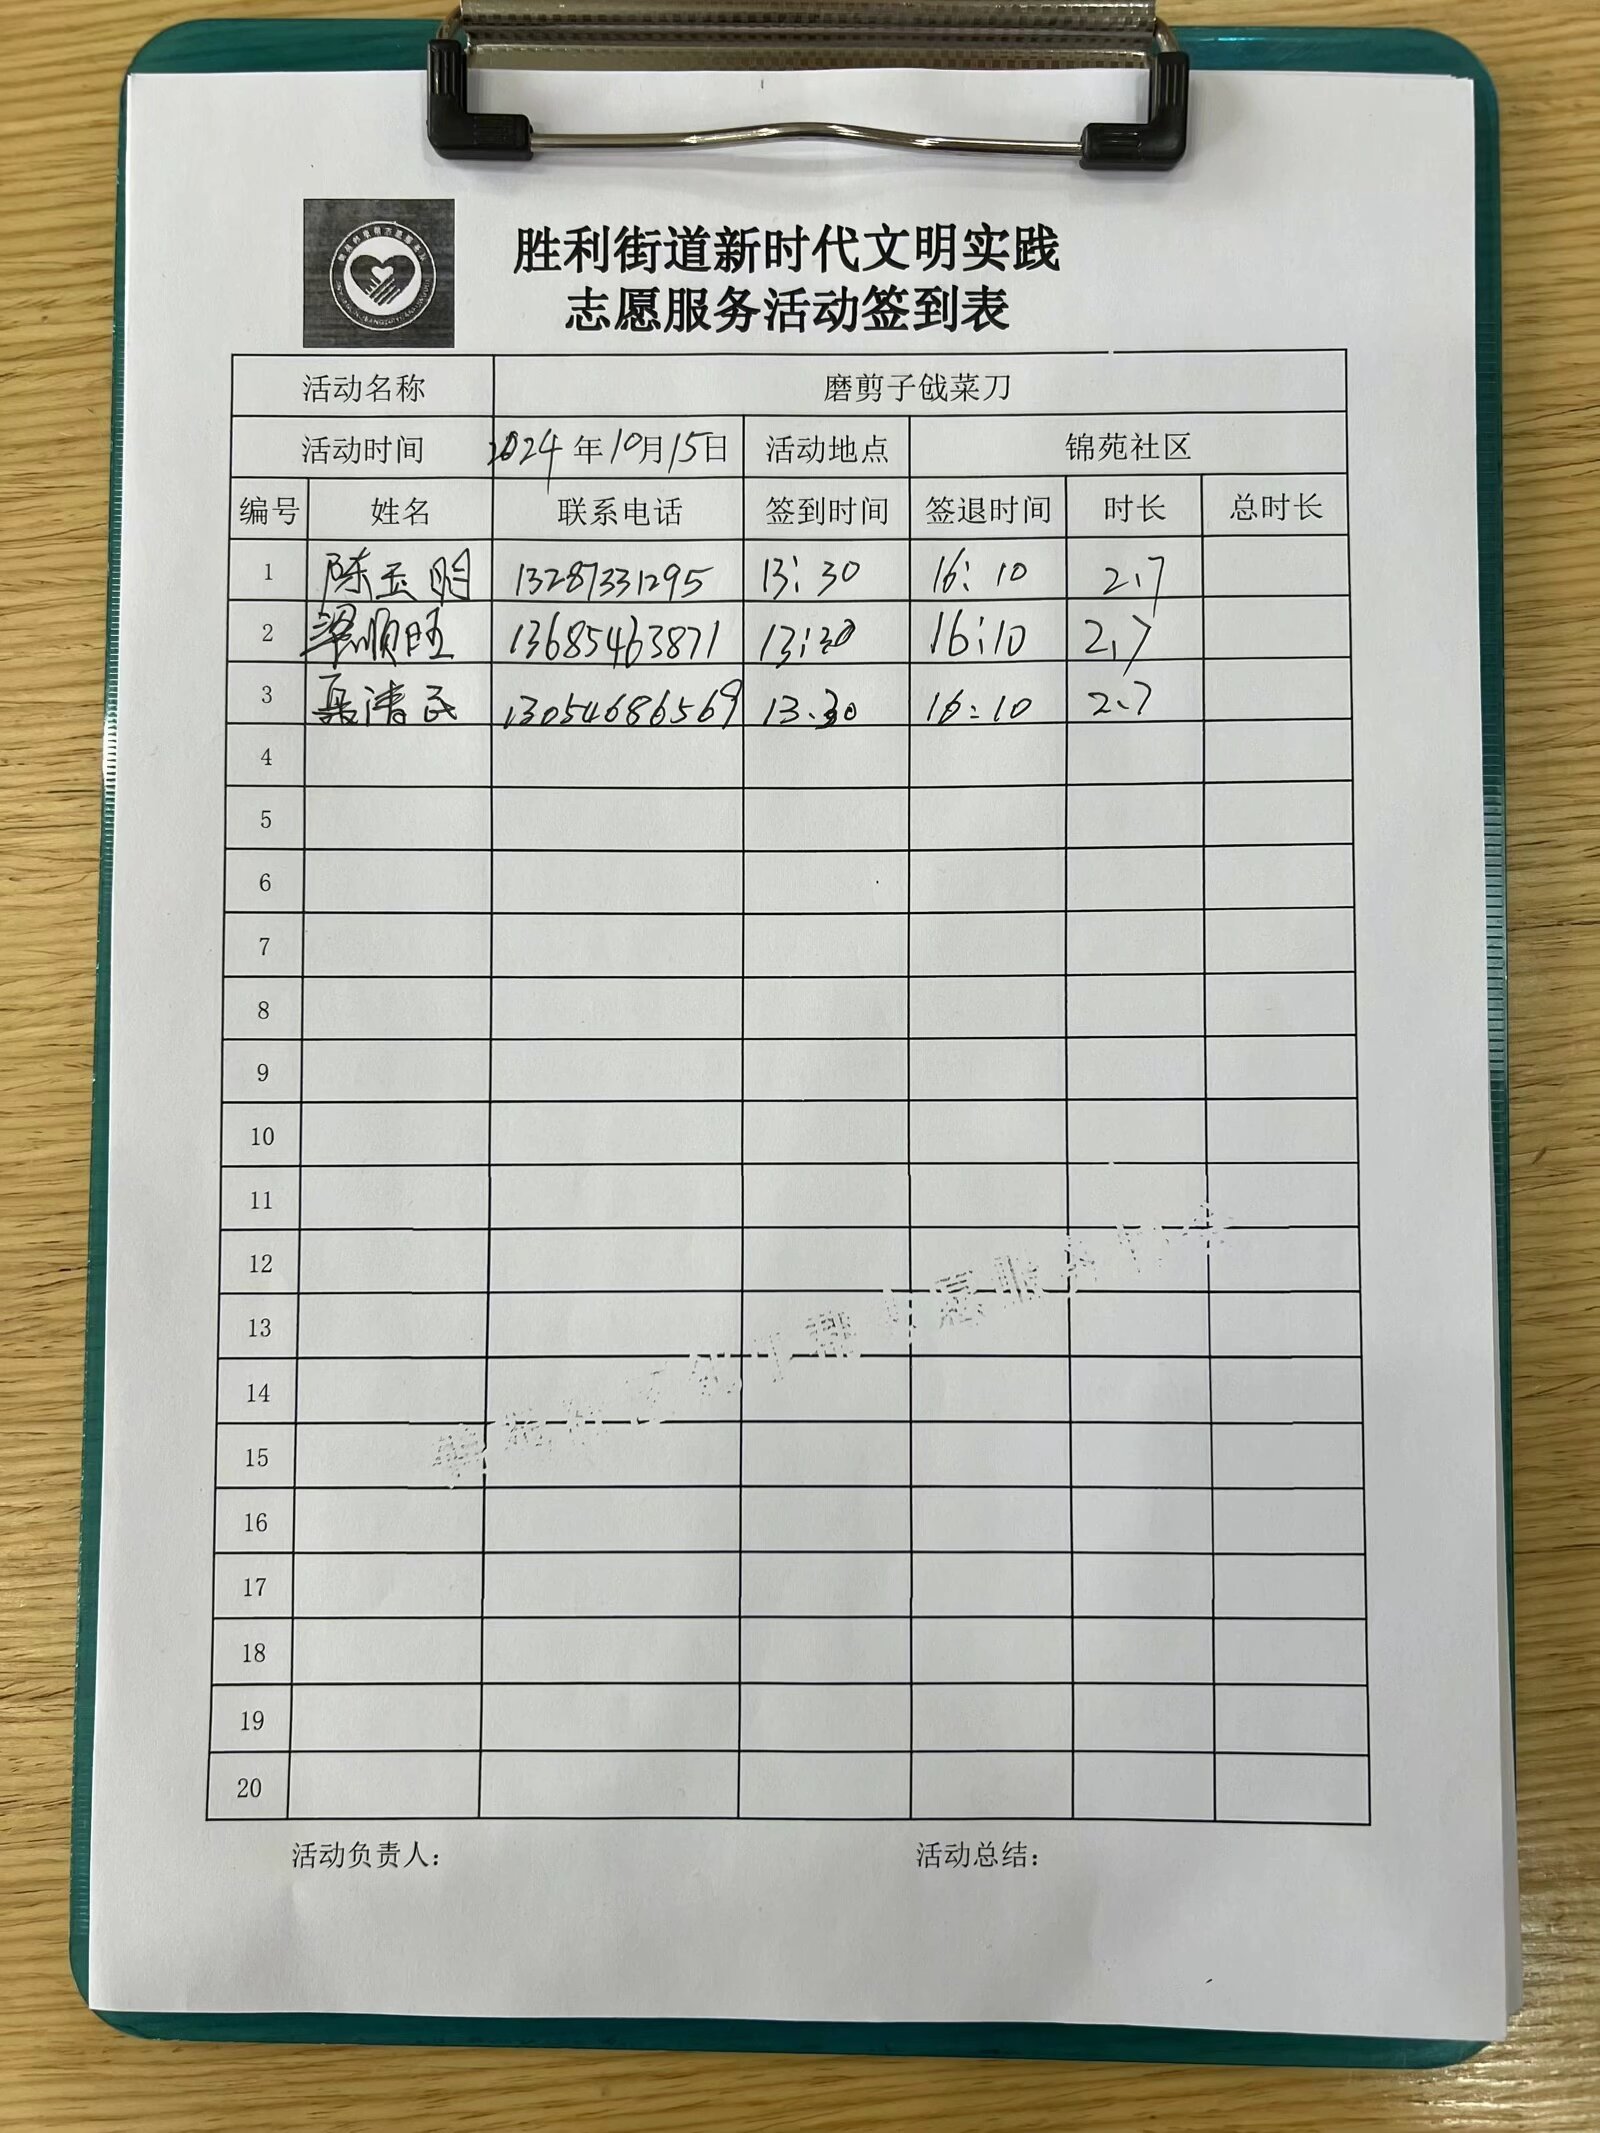 胜利街道新时代文明实践
志愿服务活动签到表
活动名称 磨剪子戗菜刀
活动时间 2024年10月15日 活动地点 锦苑社区
编号 姓名 联系电话 签到时间 签退时间 时长 总时长
1 陈玉明 13287331295 13:30 16:10 2.7
2 梁顺旺 13685463871 13:30 16:10 2.7
3 聂清民 13054686569 13.30 16:10 2.7
4
5
6
7
8
9
10
11
12
13
14
15
16
17
18
19
20
活动负责人: 活动总结: